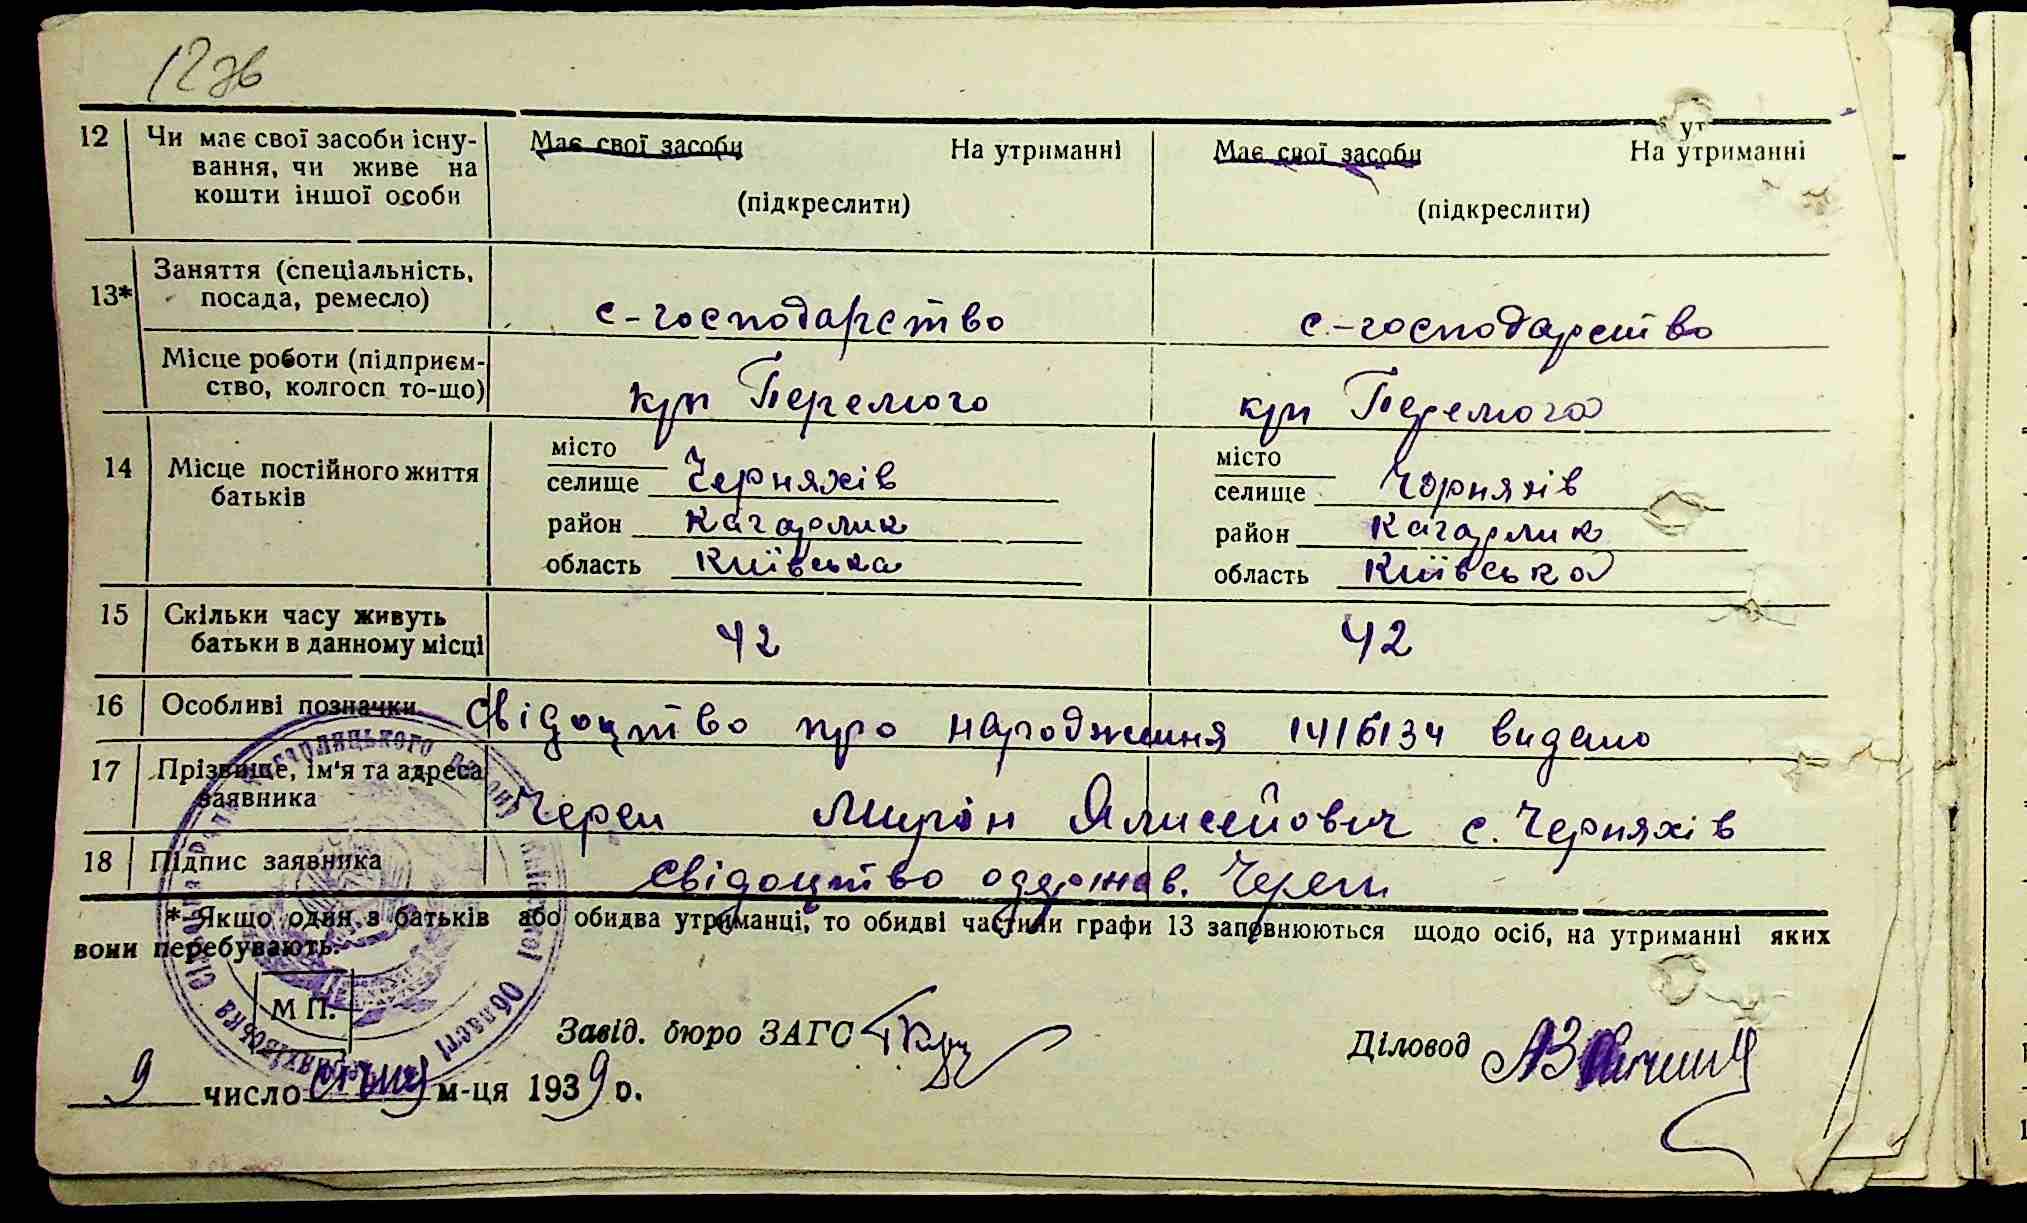 12 зв
12 Чи має свої засоби існу- Має свої засоби На утриманні Має свої засоби На утриманні
вання, чи живе на
кошти іншої особи (підкреслити) (підкреслити)
13* Заняття (спеціальність,
посада, ремесло) с-господарство с-господарство
Місце роботи (підприєм-
ство, колгосп то-що) крп Перемого крп Перемога
14 Місце постійного життя
батьків
місто місто
селище Черняхів селище Чорняхів
район Кагарлик район Кагарлик
область Київська область Київська
15 Скільки часу живуть
батьки в данному місці 42 42
16 Особливі позначки Свідоцтво про народження видано
17 Прізвище, ім'я та адреса
заявника Череп Мирон Ялисейович с. Черняхів
18 Підпис заявника свідоцтво одержав. Череп
* Якщо один з батьків або обидва утриманці, то обидві частини графи 13 заповнюються щодо осіб, на утриманні яких
вони перебувають.
М П.
Завід. бюро ЗАГС Діловод
9 число січня м-ця 1939 р.